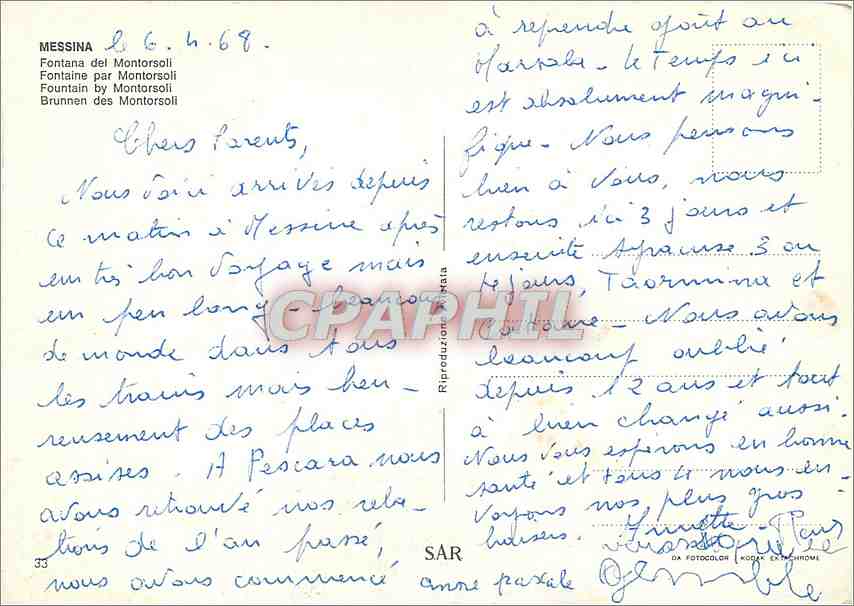 MESSINA le 6.4.68.
Fontana del Montorsoli
Fontaine par Montorsoli
Fountain by Montorsoli
Brunnen des Montorsoli
Chers Parents,
Nous voici arrivés depuis
ce matin à Messine après
un très bon voyage mais
un peu long - beaucoup
de monde dans tous
les trains mais heu-
reusement des places
assises. A Pescara nous
avons retrouvé nos rela-
tions de l'an passé,
nous avons commencé
à reprendre goût au
Marsala - le Temps ici
est absolument magni-
fique - Nous pensons
bien à vous, nous
restons ici 3 jours et
ensuite Syracuse 3 ou
4 jours, Taormina et
Catane - Nous avons
beaucoup oublié
depuis 12 ans et tout
à bien changé aussi.
Nous vous espérons en bonne
santé et tous 4 nous en-
voyons nos plus gros
baisers.
anne pascale
Riproduzione Vietata
CPAPHIL
33
SAR
DA FOTOCOLOR KODAK EKTACHROME